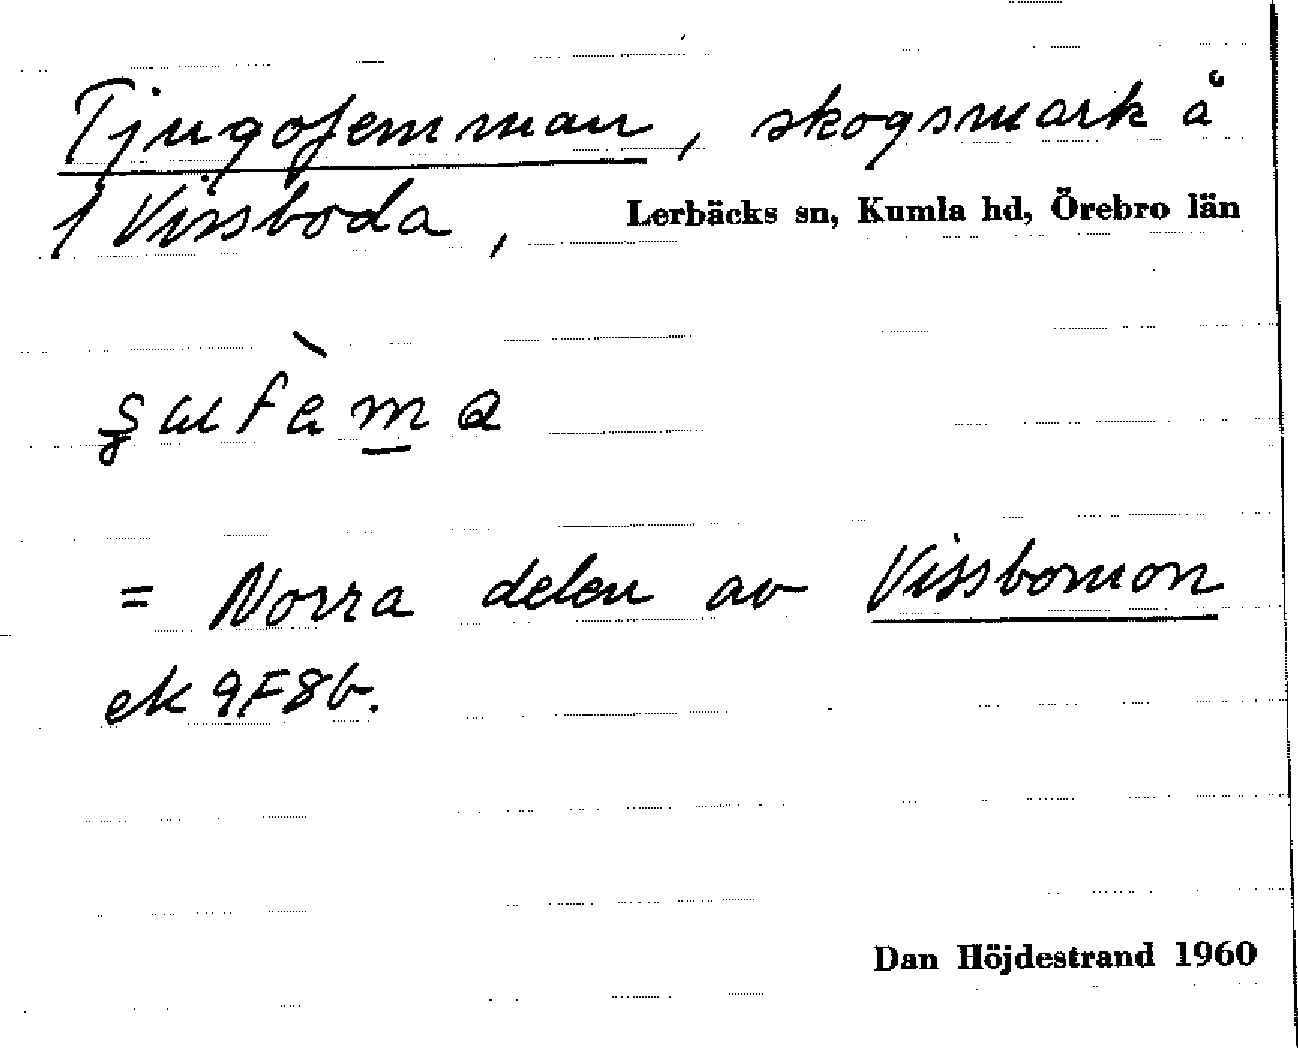 Tjugofemman, skogsmark å
1 Vissboda, Lerbäcks sn, Kumla hd, Örebro län
= Norra delen av Vissbomon
ek 9F8b.
Dan Höjdestrand 1960